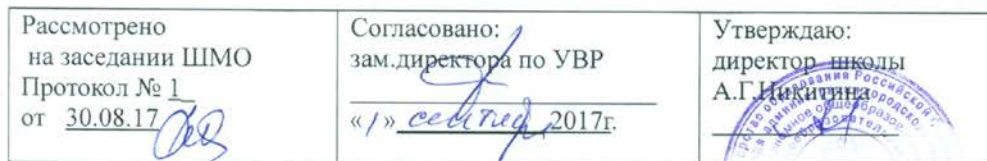 Рассмотрено
на заседании ШМО
Протокол № 1
от 30.08.17
Согласовано:
зам.директора по УВР
«1» сентября 2017г.
Утверждаю:
директор школы
А.Г.Никитина
образования Российской